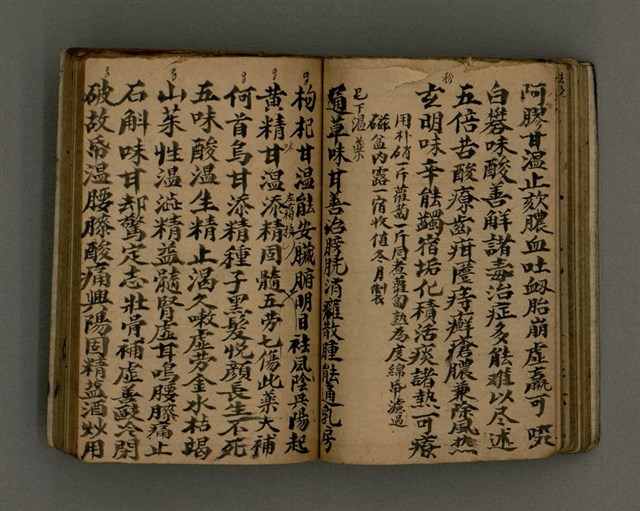 阿膠甘温止欬膿血吐衂胎崩虛羸可啖
白礬味酸善解諸毒治症多能难以尽述
五倍苦酸療齒疳䘌痔癣瘡膿兼除風热
玄明味辛能蠲宿垢化積活痰諸熱可療
用朴硝一斤蘿蔔一斤同煮蘿蔔熟為度綿帋濾過
磁盆内露一宿收值冬月製
已下温藥
通草味甘善治膀胱消癰散腫能通乳房
枸杞甘温能安臟腑明目祛風陰興陽起
黄精甘温添精固髓五劳七傷此藥大補
何首烏甘添精種子黑髮悅顔長生不死
五味酸温生精止渴久嗽虛劳金水枯竭
山茱性温澁精益髓腎虛耳鳴腰膝痛止
石斛味甘却驚定志壯骨補虛善驅冷閉
破故帋温腰膝酸痛興陽固精蓝酒炒用